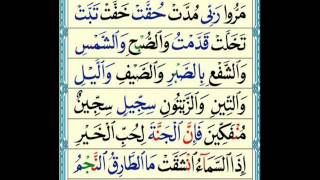 مَرُّوا رَبِّىْ مُدَّتْ حُقَّتْ خَفَّتْ تَبَّتْ
تَخَلَّتْ قَدَّمْتُ وَالصُّبْحِ وَالشَّمْسِ
وَالشَّفْعِ بِالصَّبْرِ وَالصَّيْفِ وَالَّيْلِ
وَالتِّيْنِ وَالزَّيْتُوْنِ سِجِّيْلٍ سِجِّيْنٌ
مُنْفَكِّيْنَ فَاِنَّ الْجَنَّةَ لِحُبِّ الْخَيْرِ
اِذَا السَّمَآءُ انْشَقَّتْ مَا الطَّارِقُ النَّجْمُ